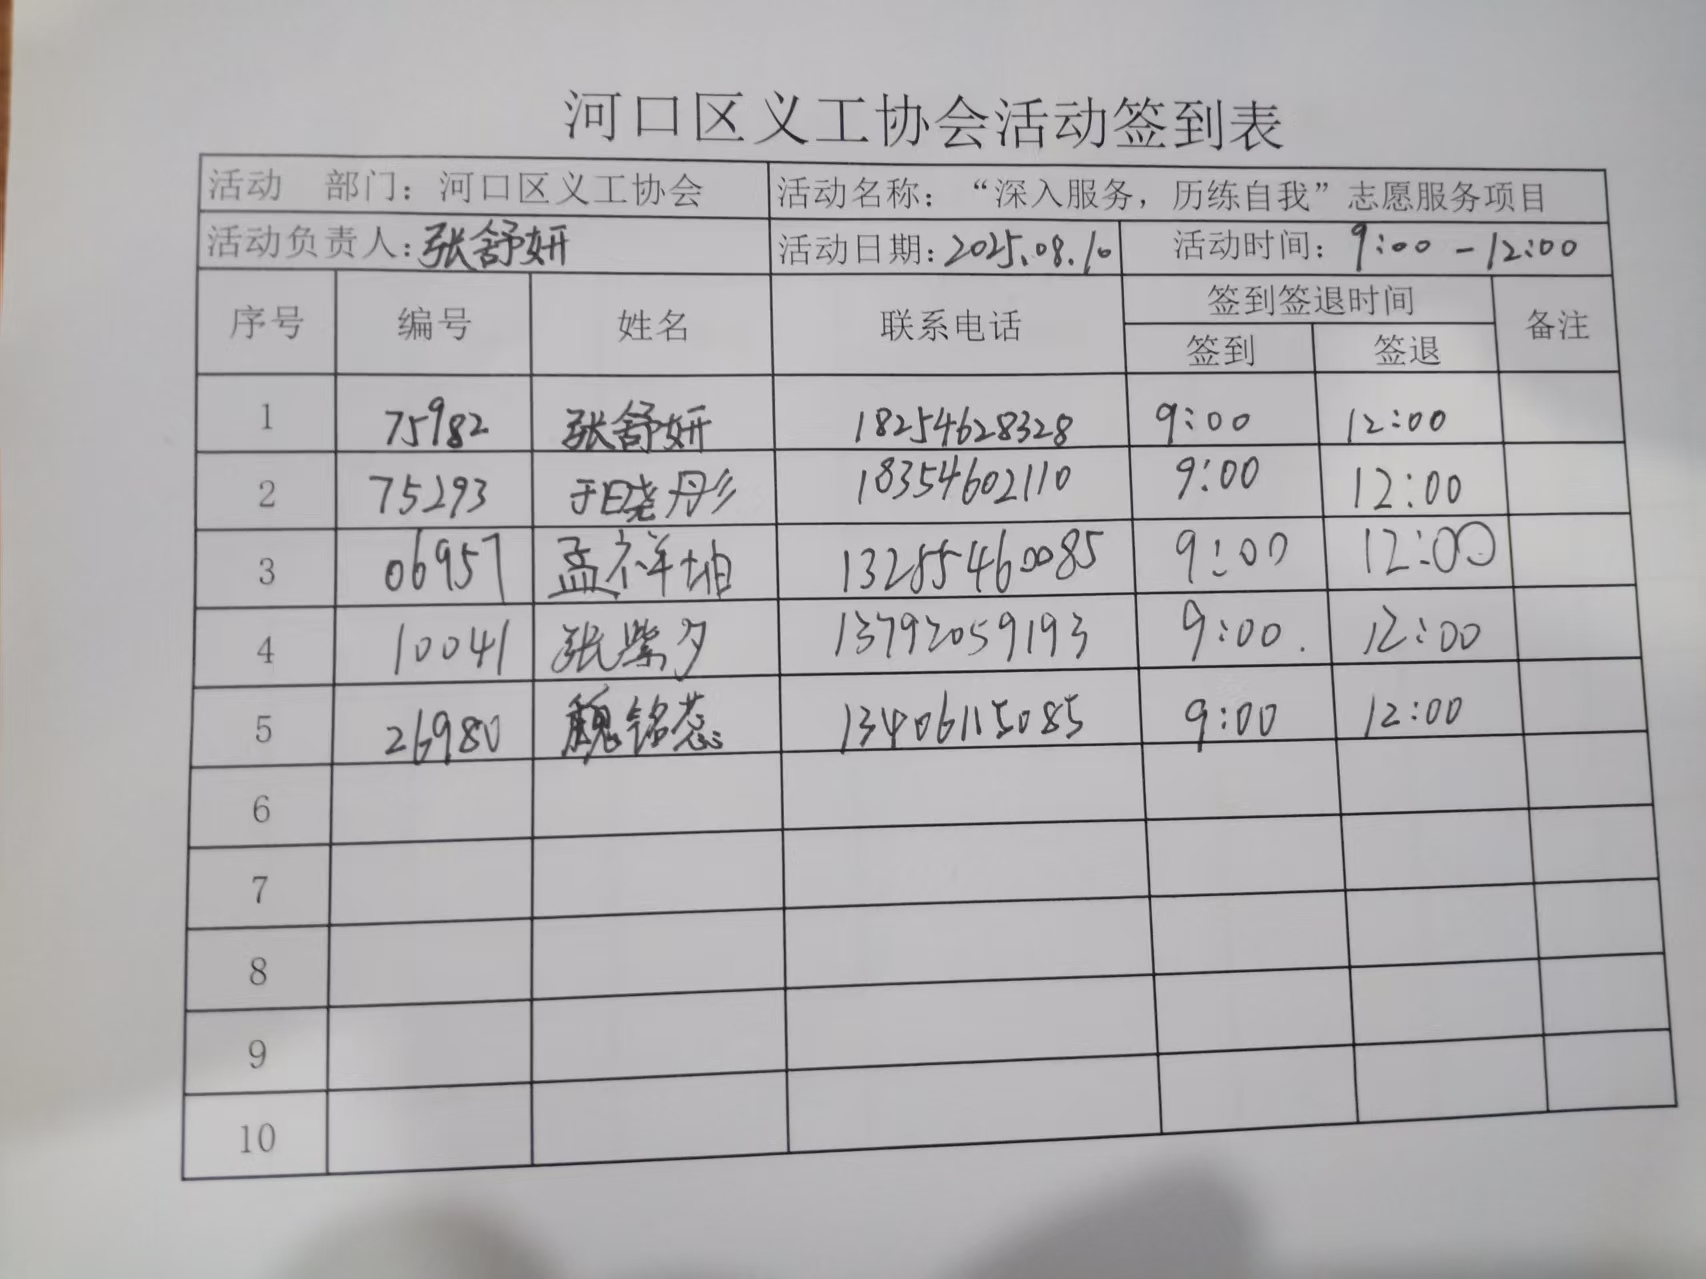 河口区义工协会活动签到表
活动 部门：河口区义工协会 活动名称：“深入服务，历练自我”志愿服务项目
活动负责人：张舒妍 活动日期：2025.08.10 活动时间：9:00-12:00
序号 编号 姓名 联系电话 签到签退时间 备注
签到 签退
1 75982 张舒妍 18254628328 9:00 12:00
2 75293 于晓彤 18354602110 9:00 12:00
3 06957 孟祥坤 13285460085 9:00 12:00
4 10041 张紫夕 13792059193 9:00. 12:00
5 26980 魏铭蕊 13406115085 9:00 12:00
6
7
8
9
10